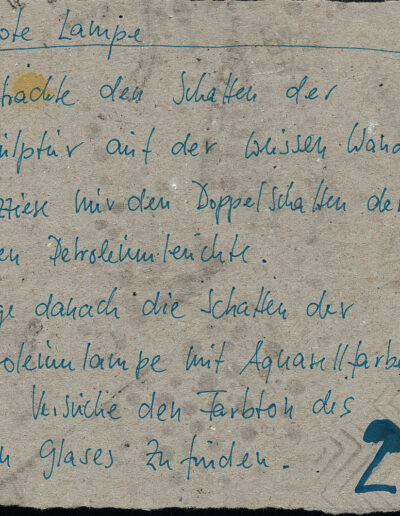 ote Lampe
trachte den Schatten der
ulptur auf der weissen Wand
ziere mir den Doppelschatten der
en Petroleumleuchte.
ge danach die Schatten der
roleumlampe mit Aquarellfarbe
Versuche den Farbton des
n Glases zu finden.
2